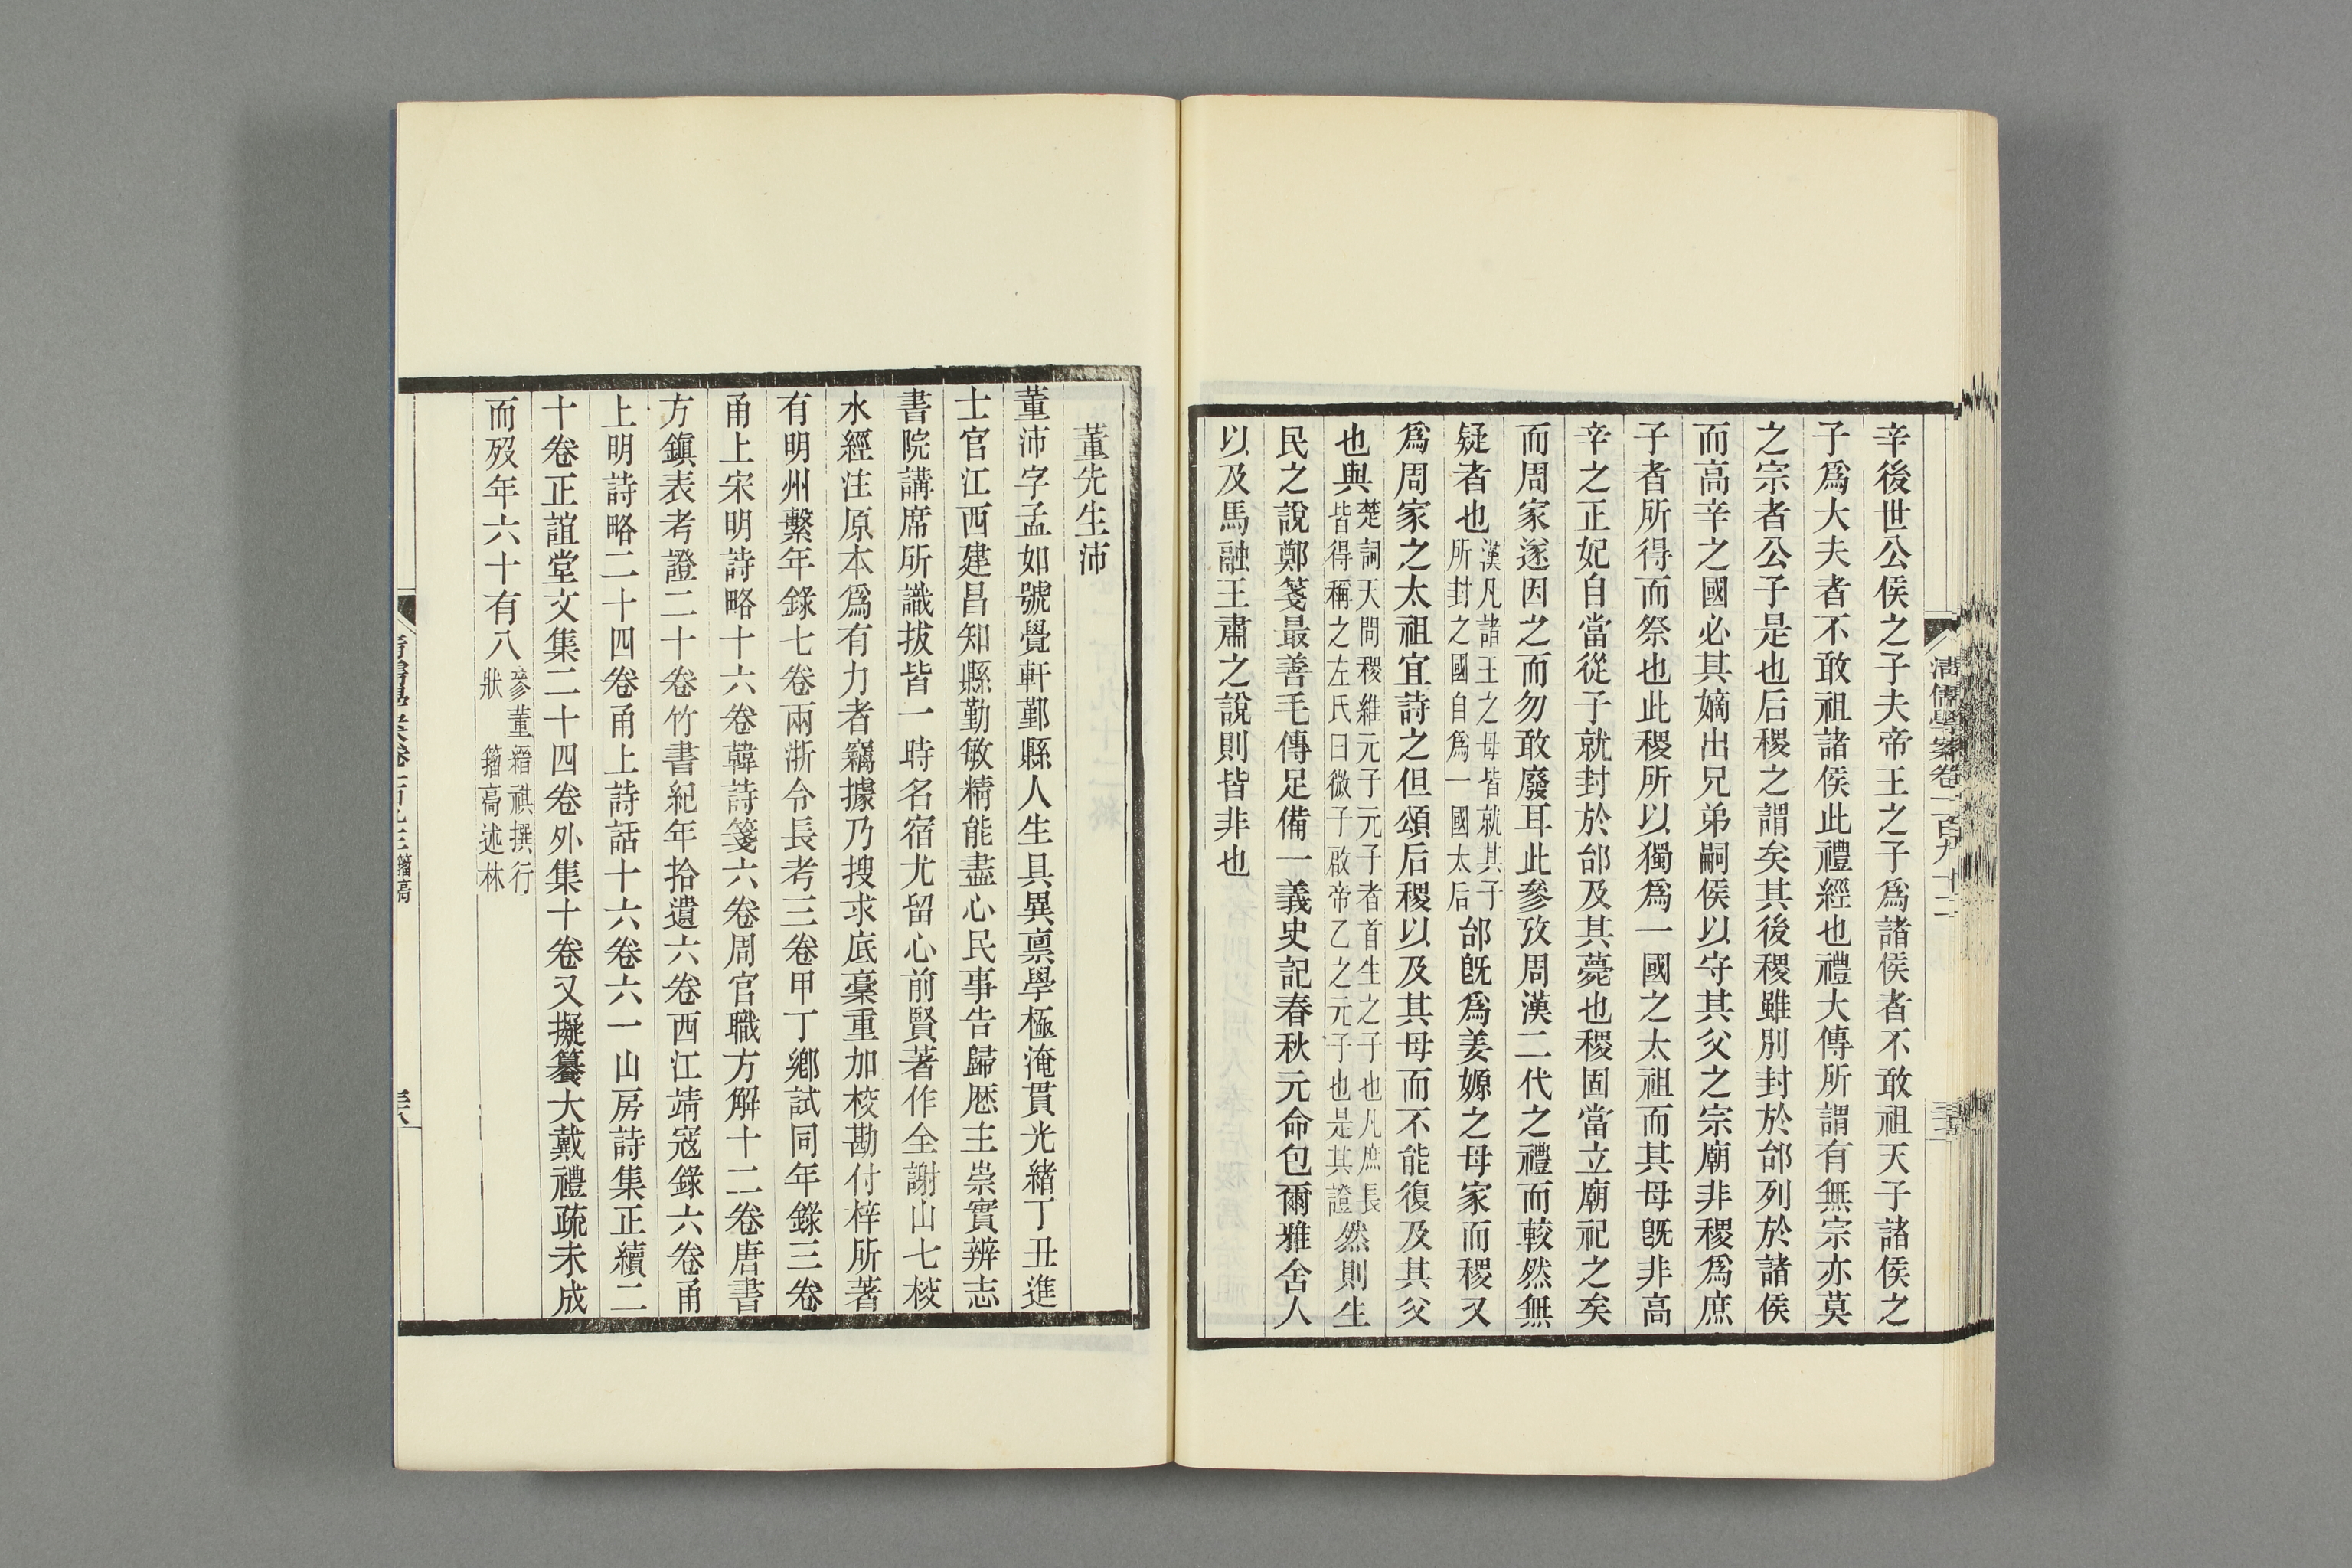 辛後世公侯之子夫帝王之子爲諸侯者不敢祖天子諸侯之
子爲大夫者不敢祖諸侯此禮經也禮大傳所謂有無宗亦莫
之宗者公子是也后稷之謂矣其後稷雖別封於邰列於諸侯
而高辛之國必其嫡出兄弟嗣侯以守其父之宗廟非稷爲庶
子者所得而祭也此稷所以獨爲一國之太祖而其母旣非高
辛之正妃自當從子就封於邰及其薨也稷固當立廟祀之矣
而周家遂因之而勿敢廢耳此參攷周漢二代之禮而較然無
疑者也漢凡諸王之母皆就其子所封之國自爲一國太后邰旣爲姜嫄之母家而稷又
爲周家之太祖宜詩之但頌后稷以及其母而不能復及其父
也與楚詞天問稷維元子元子者首生之子也凡庶長皆得稱之左氏曰微子啟帝乙之元子也是其證然則生
民之說鄭箋最善毛傳足備一義史記春秋元命包爾雅舍人
以及馬融王肅之說則皆非也
清儒學案卷一百九十二
董先生沛
董沛字孟如號覺軒鄞縣人生具異禀學極淹貫光緖丁丑進
士官江西建昌知縣勤敏精能盡心民事告歸歷主崇實辨志
書院講席所識拔皆一時名宿尤留心前賢著作全謝山七校
水經注原本爲有力者竊據乃搜求底稾重加校勘付梓所著
有明州繫年錄七卷兩浙令長考三卷甲丁鄉試同年錄三卷
甬上宋明詩略十六卷韓詩箋六卷周官職方解十二卷唐書
方鎭表考證二十卷竹書紀年拾遺六卷西江靖寇錄六卷甬
上明詩略二十四卷甬上詩話十六卷六一山房詩集正續二
十卷正誼堂文集二十四卷外集十卷又擬纂大戴禮疏未成
而歿年六十有八參董縉祺撰行狀 籀高述林